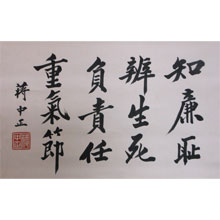 知廉恥
辨生死
負責任
重氣節
蔣中正